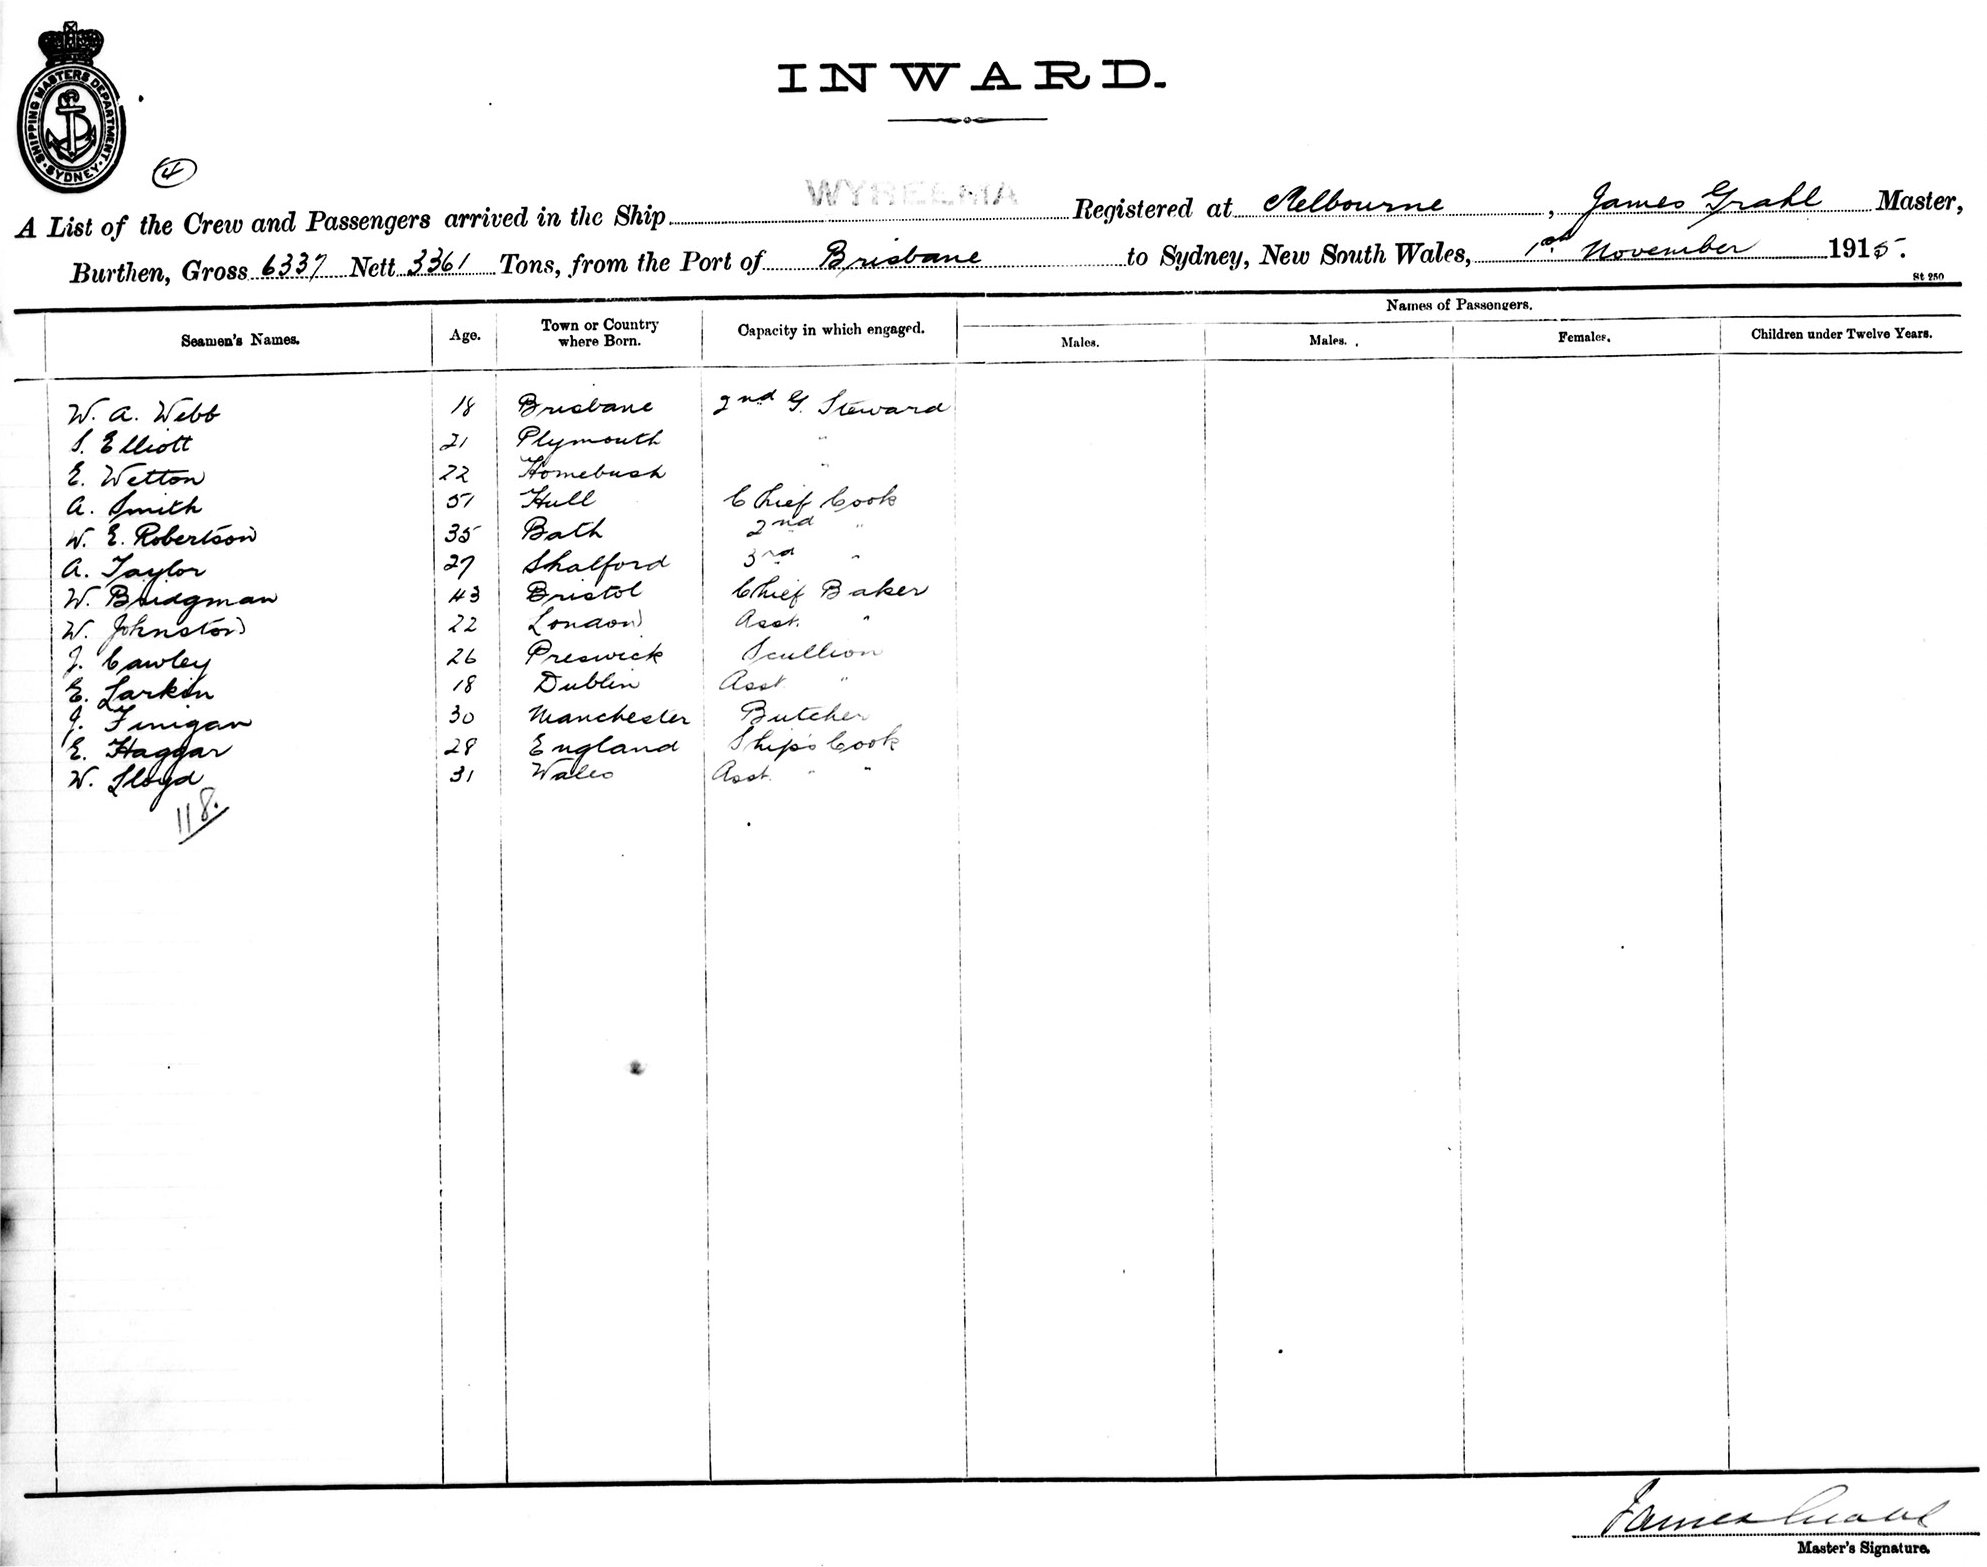 SHIPPING MASTERS DEPARTMENT · SYDNEY ·
INWARD.
4
A List of the Crew and Passengers arrived in the Ship WYREEMA Registered at Melbourne, James Grahl Master,
Burthen, Gross 6337 Nett 3361 Tons, from the Port of Brisbane to Sydney, New South Wales, 1st November 1915.
St 250
Names of Passengers.
Seamen's Names. Age. Town or Country where Born. Capacity in which engaged. Males. Males. Females. Children under Twelve Years.
W. A. Webb 18 Brisbane 2nd G. Steward
S. Elliott 21 Plymouth "
E. Wetton 22 Homebush "
A. Smith 51 Hull Chief Cook
W. E. Robertson 35 Bath 2nd "
A. Taylor 27 Shalford 3rd "
W. Bridgman 43 Bristol Chief Baker
W. Johnston 22 London Asst. "
J. Cawley 26 Preswick Scullion
E. Larkin 18 Dublin Asst "
J. Finigan 30 Manchester Butcher
E. Haggar 28 England Ship's Cook
W. Lloyd 31 Wales Asst. " "
118.
James Grahl
Master's Signature.